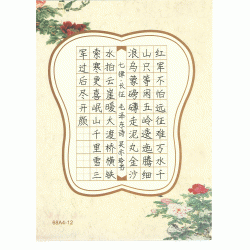 红军不怕远征难万水千
山只等闲五岭逶迤腾细
浪乌蒙磅礴走泥丸金沙
七律·长征 毛泽东诗
水拍云崖暖大渡桥横铁
索寒更喜岷山千里雪三
军过后尽开颜
68A4-12